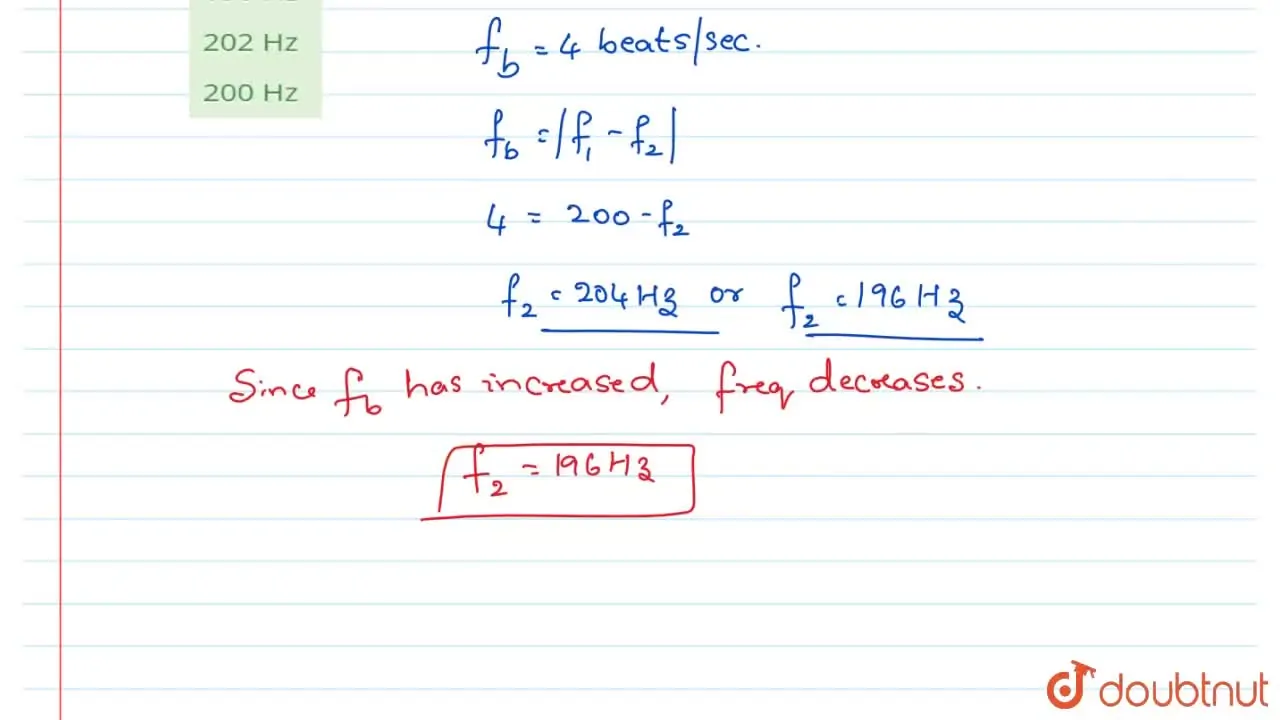 202 Hz
200 Hz
f_b = 4 beats/sec.
f_b = |f_1 - f_2|
4 = 200 - f_2
f_2 = 204 Hz or f_2 = 196 Hz
Since f_b has increased, freq decreases.
f_2 = 196 Hz
doubtnut